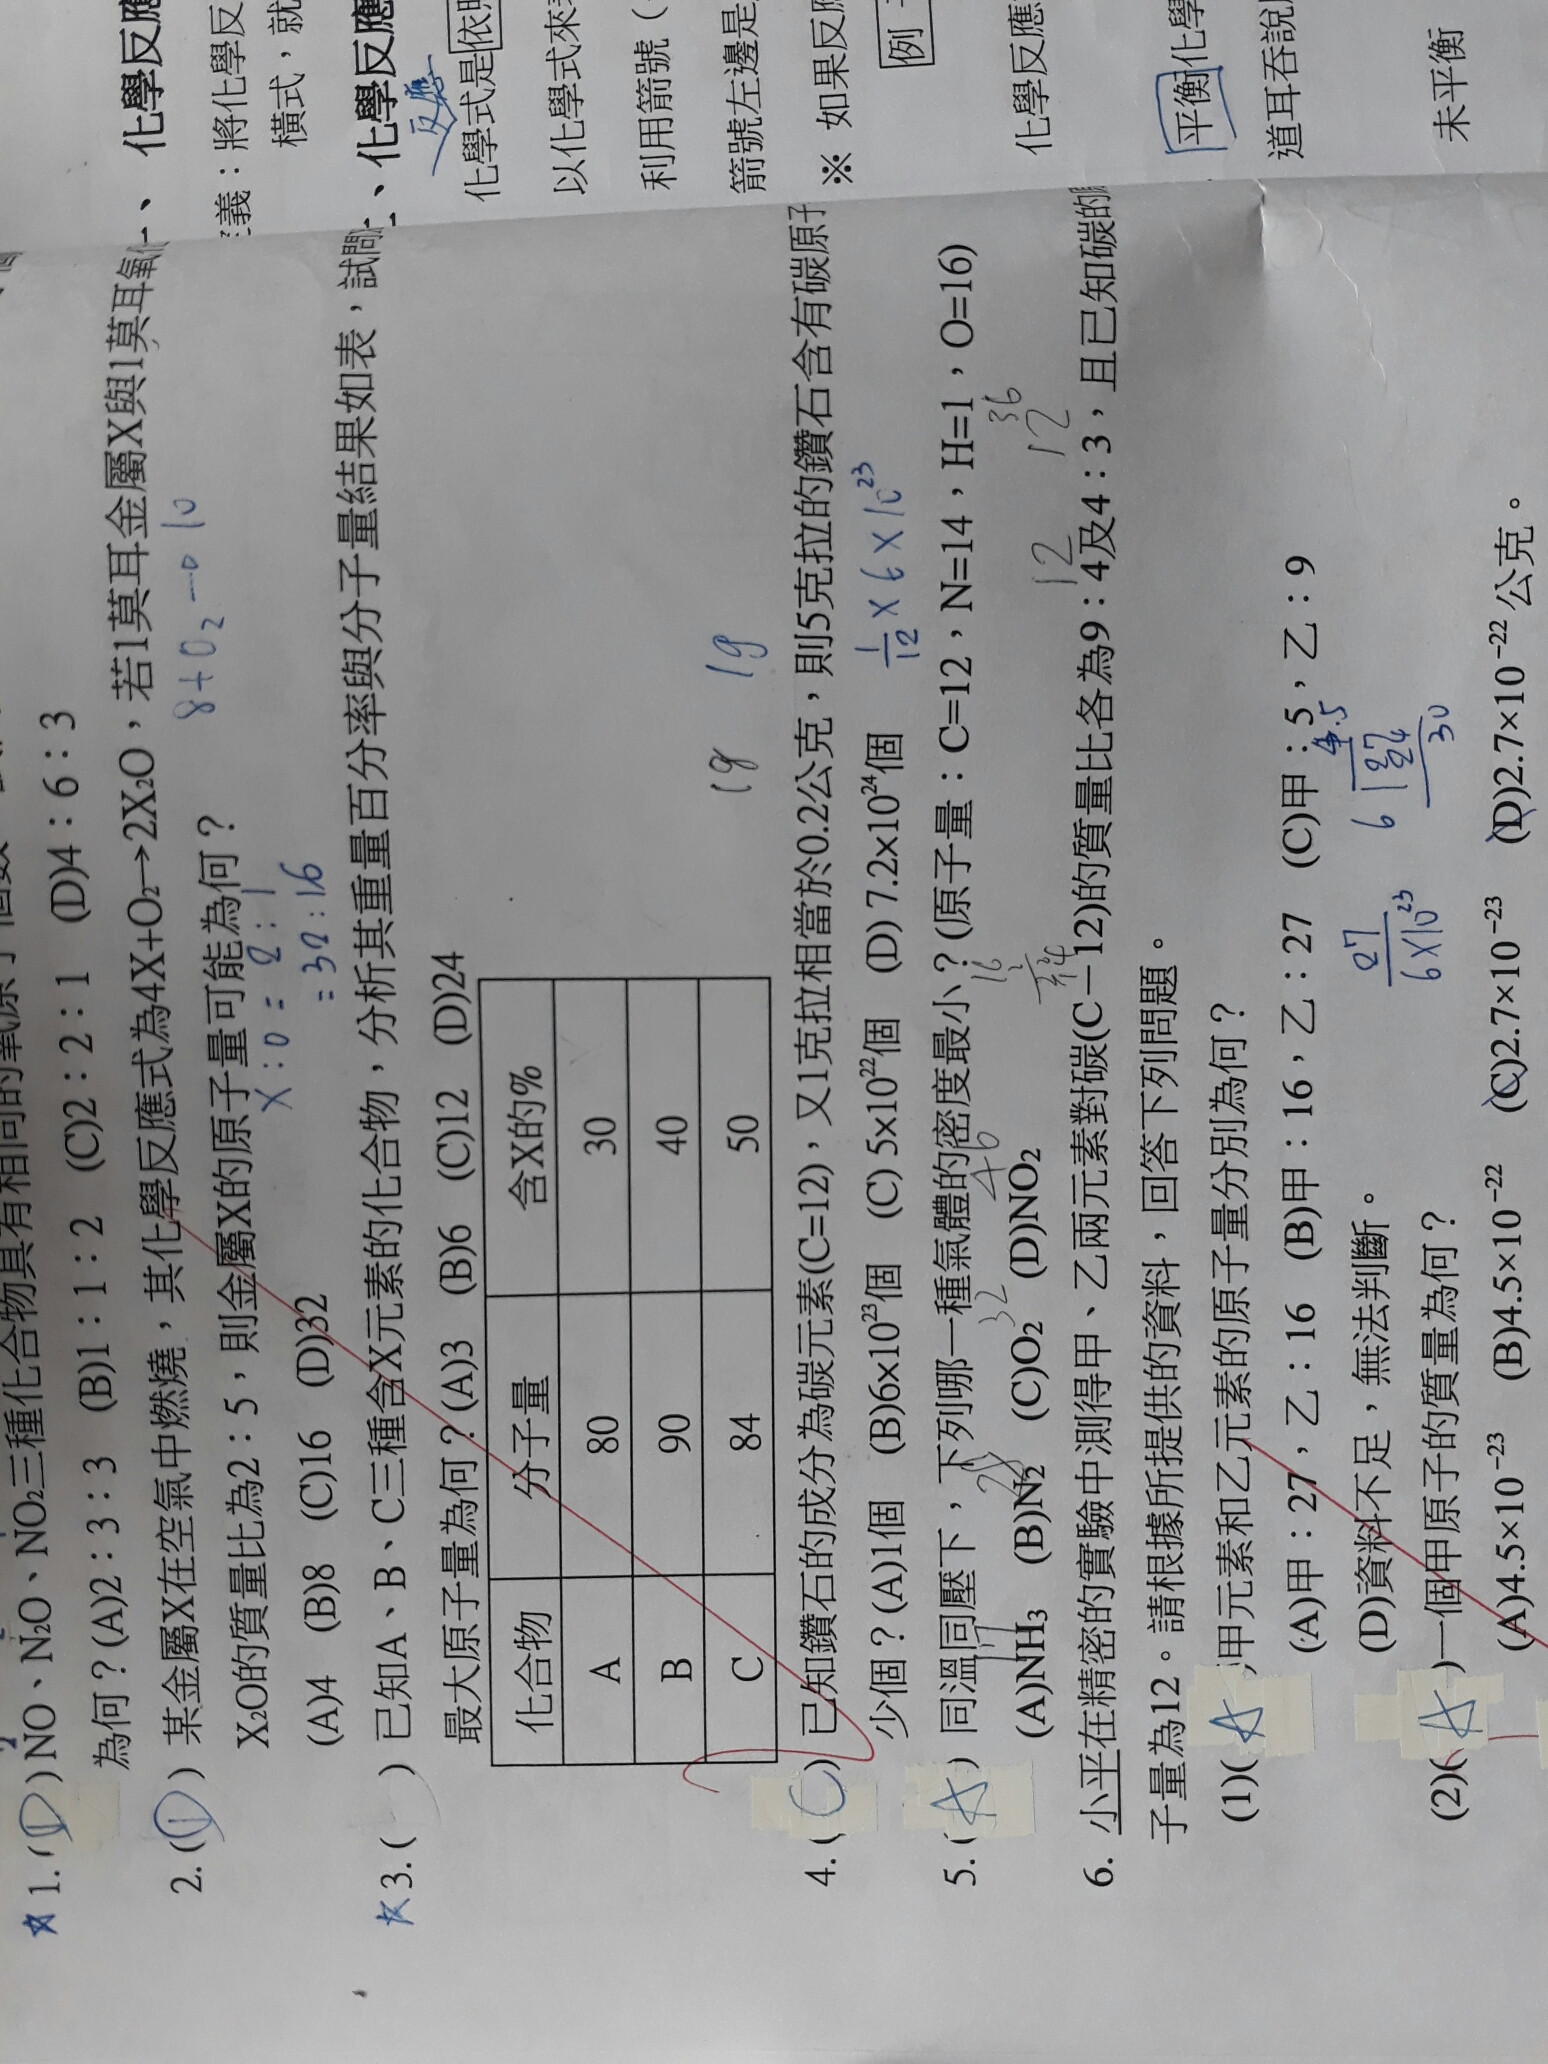 1.(D)NO、N₂O、NO₂三種化合物具有相同的氧原子
為何？(A)2：3：3 (B)1：1：2 (C)2：2：1 (D)4：6：3
2.( ) 某金屬X在空氣中燃燒，其化學反應式為4X+O₂→2X₂O，若1莫耳金屬X與1莫耳氧
8+O₂→10
X₂O的質量比為2：5，則金屬X的原子量可能為何？
X:O=2:1
=32:16
(A)4 (B)8 (C)16 (D)32
3.( ) 已知A、B、C三種含X元素的化合物，分析其重量百分率與分子量結果如表，試問
最大原子量為何？(A)3 (B)6 (C)12 (D)24
化合物 分子量 含X的%
A 80 30
B 90 40
C 84 50
4.(C) 已知鑽石的成分為碳元素(C=12)，又1克拉相當於0.2公克，則5克拉的鑽石含有碳原子
少個？(A)1個 (B)6×10²³個 (C) 5×10²²個 (D) 7.2×10²⁴個
1/12×6×10²³
5.(A) 同溫同壓下，下列哪一種氣體的密度最小？(原子量：C=12，N=14，H=1，O=16)
17 28 32 46
(A)NH₃ (B)N₂ (C)O₂ (D)NO₂
6. 小平在精密的實驗中測得甲、乙兩元素對碳(C－12)的質量比各為9：4及4：3，且已知碳的
子量為12。請根據所提供的資料，回答下列問題。
(1)(A)甲元素和乙元素的原子量分別為何？
(A)甲：27，乙：16 (B)甲：16，乙：27 (C)甲：5，乙：9
(D)資料不足，無法判斷。
27/6×10²³
6 27 4.5
24
30
(2)(A)一個甲原子的質量為何？
(A)4.5×10⁻²³ (B)4.5×10⁻²² (C)2.7×10⁻²³ (D)2.7×10⁻²²公克。
一、化學反應
義：將化學反
橫式，就
、化學反應
反應
化學式是依照
以化學式來
利用箭號（
箭號左邊是
※ 如果反應
例
化學反應
平衡化學
道耳吞說
未平衡